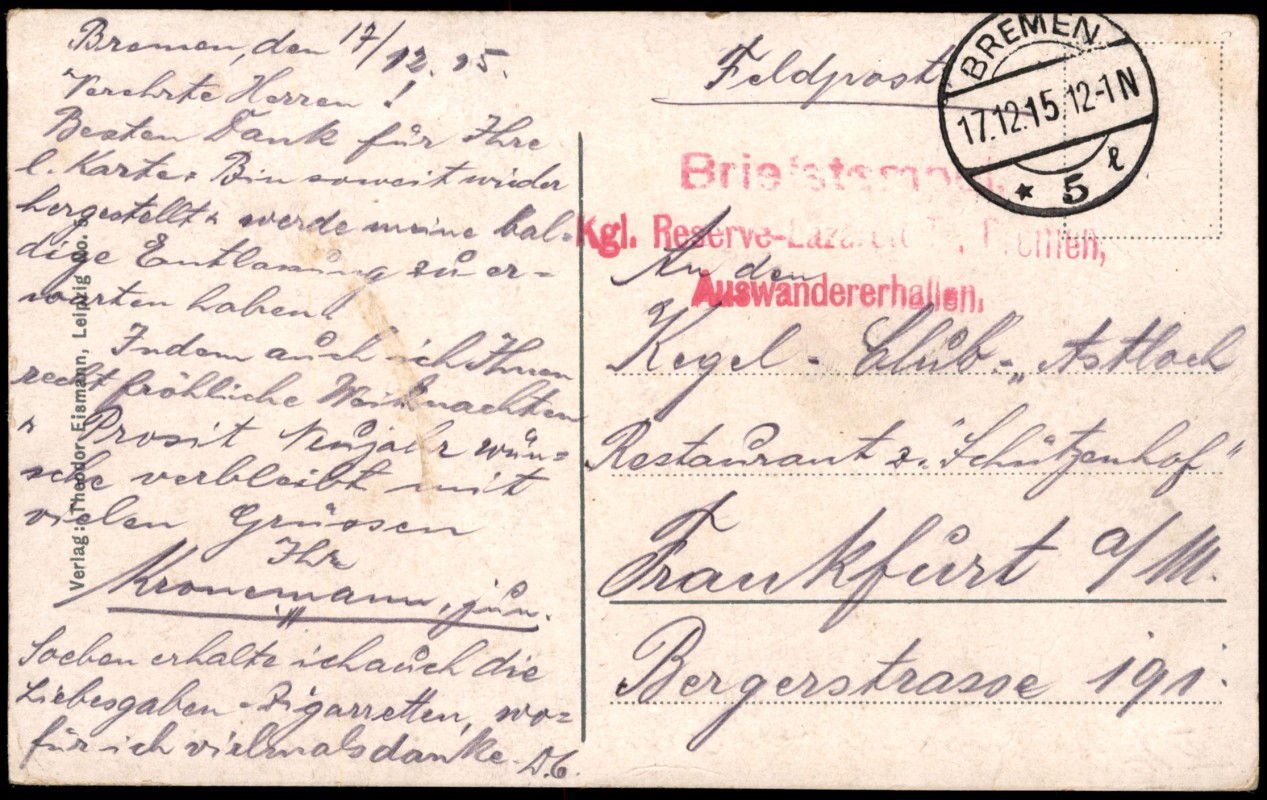 Bremen, den 17/12. 15.
Verehrte Herren!
Besten Dank für Ihre
l. Karte. Bin soweit wieder
hergestellt u. werde meine bal-
dige Entlassung zu er-
warten haben.
Indem auch ich Ihnen
recht fröhliche Weihnachten
u. Prosit Neujahr wün-
sche verbleibt mit
vielen Grüssen
Ihr
Kronemann, jun.
Soeben erhalte ich auch die
Liebesgaben-Zigarretten, wo-
für ich vielmals danke. D.O.
Verlag: Theodor Eismann, Leipzig No. 5
Feldpost
BREMEN
17.12.15.12-1N
* 5 l
Briefstempel.
Kgl. Reserve-Lazarett Bremen,
Auswandererhallen.
An den
Kegel-Club-„Astloch
Restaurant z. "Schützenhof"
Frankfurt a/M.
Bergerstrasse 191.